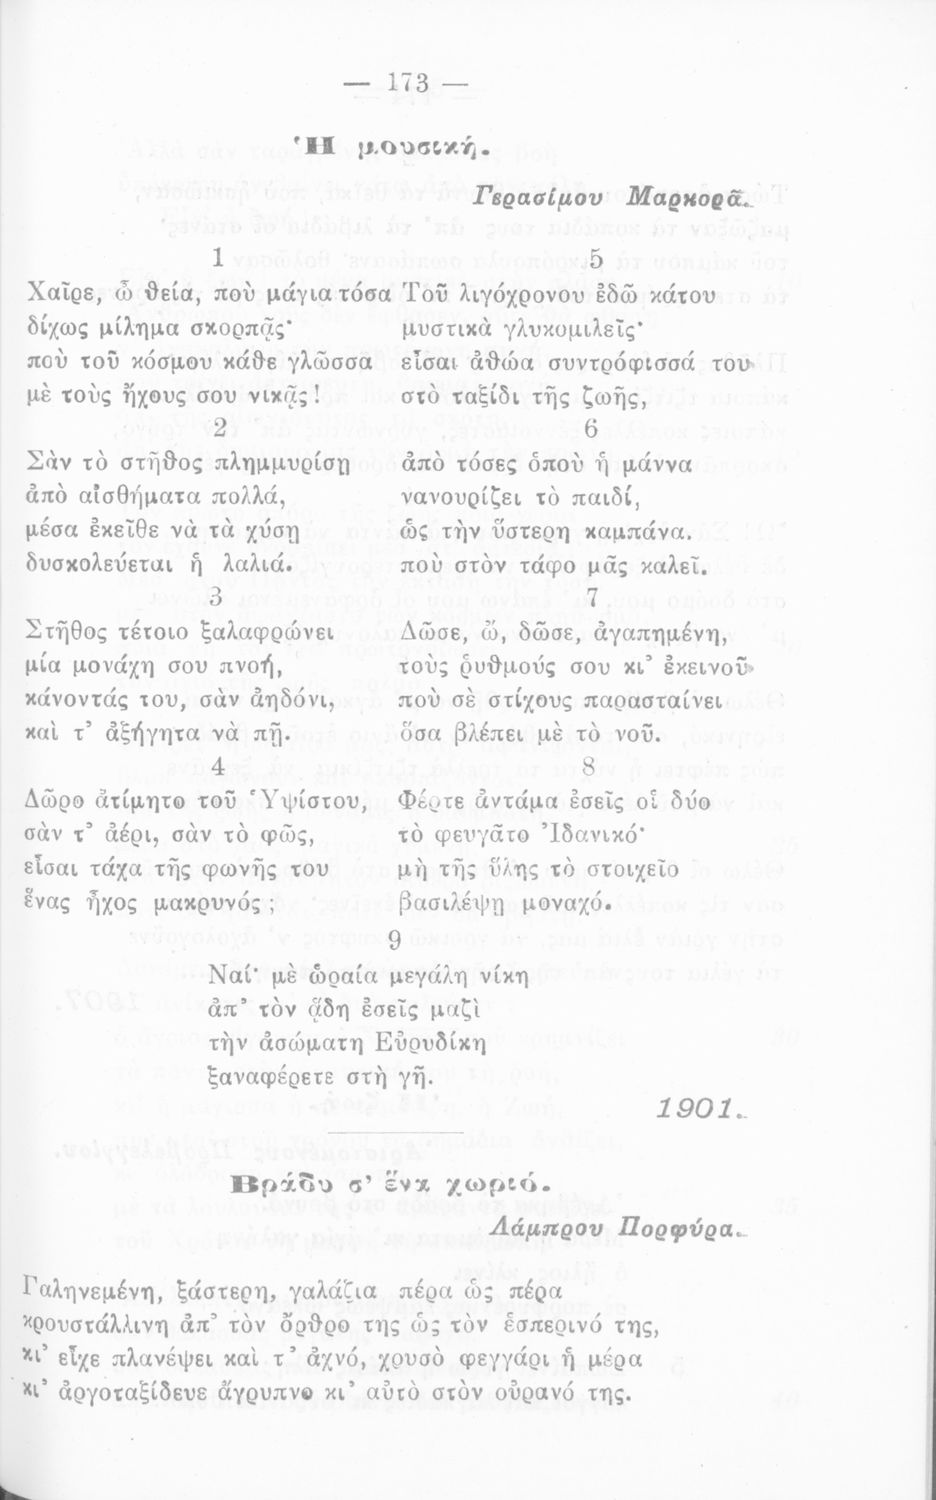 — 173 —
Ἡ μουσική.
Γερασίμου Μαρκορᾶ.
1
Χαῖρε, ὦ θεία, ποὺ μάγια τόσα
δίχως μίλημα σκορπᾷς·
ποὺ τοῦ κόσμου κάθε γλῶσσα
μὲ τοὺς ἤχους σου νικᾷς!
2
Σὰν τὸ στῆθος πλημμυρίσῃ
ἀπὸ αἰσθήματα πολλά,
μέσα ἐκεῖθε νὰ τὰ χύσῃ
δυσκολεύεται ἡ λαλιά.
3
Στῆθος τέτοιο ξαλαφρώνει
μία μονάχη σου πνοή,
κάνοντάς του, σὰν ἀηδόνι,
καὶ τ' ἀξήγητα νὰ πῇ.
4
Δῶρο ἀτίμητο τοῦ Ὑψίστου,
σὰν τ' ἀέρι, σὰν τὸ φῶς,
εἶσαι τάχα τῆς φωνῆς του
ἕνας ἦχος μακρυνός;
5
Τοῦ λιγόχρονου ἐδῶ κάτου
μυστικὰ γλυκομιλεῖς·
εἶσαι ἀθώα συντρόφισσά του
στὸ ταξίδι τῆς ζωῆς,
6
ἀπὸ τόσες ὁποὺ ἡ μάννα
νανουρίζει τὸ παιδί,
ὣς τὴν ὕστερη καμπάνα.
ποὺ στὸν τάφο μᾶς καλεῖ.
7
Δῶσε, ὤ, δῶσε, ἀγαπημένη,
τοὺς ῥυθμούς σου κι' ἐκεινοῦ
ποὺ σὲ στίχους παρασταίνει
ὅσα βλέπει μὲ τὸ νοῦ.
8
Φέρτε ἀντάμα ἐσεῖς οἱ δύο
τὸ φευγᾶτο Ἰδανικό·
μὴ τῆς ὕλης τὸ στοιχεῖο
βασιλέψῃ μοναχό.
9
Ναί· μὲ ὡραία μεγάλη νίκη
ἀπ' τὸν ᾅδη ἐσεῖς μαζὶ
τὴν ἀσώματη Εὐρυδίκη
ξαναφέρετε στὴ γῆ.
1901.
Βράδυ σ' ἕνα χωριό.
Λάμπρου Πορφύρα.
Γαληνεμένη, ξάστερη, γαλάζια πέρα ὣς πέρα
κρουστάλλινη ἀπ' τὸν ὄρθρο της ὣς τὸν ἑσπερινό της,
κι' εἶχε πλανέψει καὶ τ' ἀχνό, χρυσὸ φεγγάρι ἡ μέρα
κι' ἀργοταξίδευε ἄγρυπνο κι' αὐτὸ στὸν οὐρανό της.